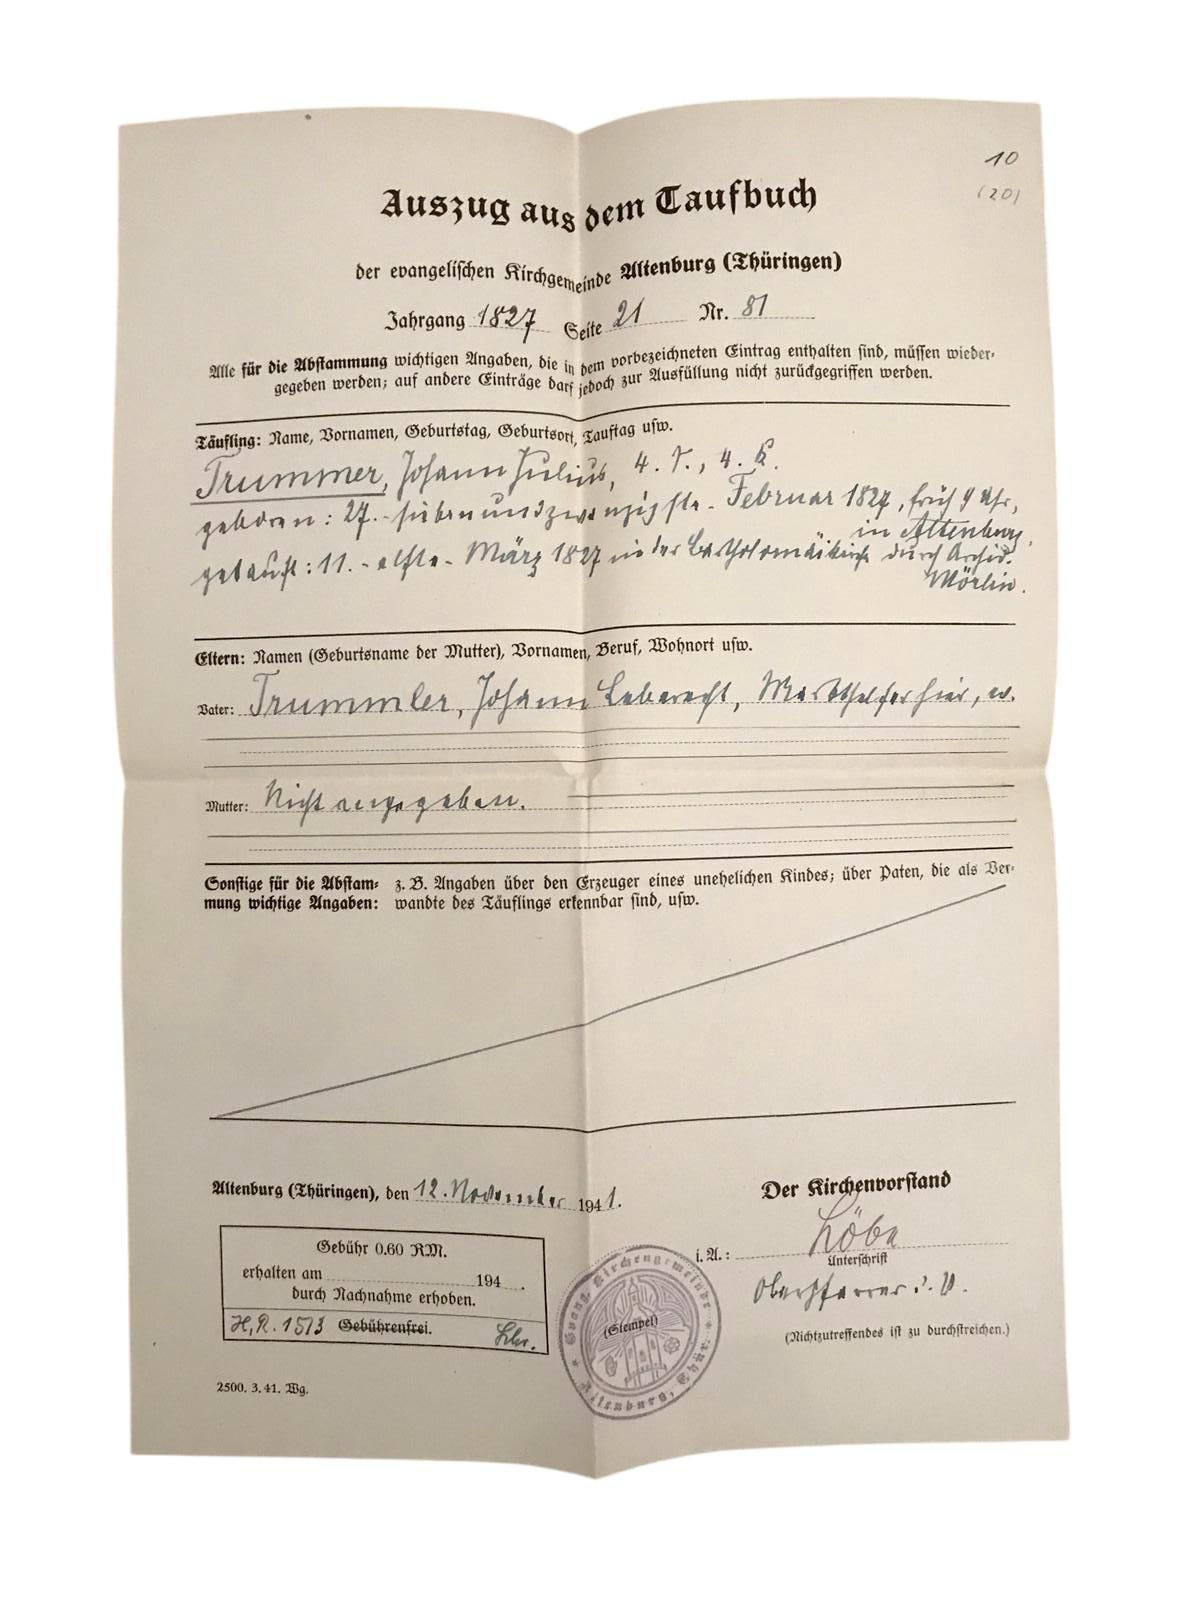 10
(20)
Auszug aus dem Taufbuch
der evangelischen Kirchgemeinde Altenburg (Thüringen)
Jahrgang 1827 Seite 21 Nr. 81
Alle für die Abstammung wichtigen Angaben, die in dem vorbezeichneten Eintrag enthalten sind, müssen wieder-
gegeben werden; auf andere Einträge darf jedoch zur Ausfüllung nicht zurückgegriffen werden.
Täufling: Name, Vornamen, Geburtstag, Geburtsort, Tauftag usw.
Trummer, Johann Julius, 4. T., 4. K.
geboren: 27. - siebenundzwanzigste - Februar 1827, früh 9 Uhr,
in Altenburg,
getauft: 11. - elfte - März 1827 in der Bartholomäikirche durch Archid.
Mörlin.
Eltern: Namen (Geburtsname der Mutter), Vornamen, Beruf, Wohnort usw.
Vater: Trummler, Johann Leberecht, Markthelfer hier, ev.
Mutter: Nicht angegeben.
Sonstige für die Abstam- z. B. Angaben über den Erzeuger eines unehelichen Kindes; über Paten, die als Ver-
mung wichtige Angaben: wandte des Täuflings erkennbar sind, usw.
Altenburg (Thüringen), den 12. November 1941.
Der Kirchenvorstand
i. A.: Löbe
Unterschrift
Oberpfarrer i. V.
(Nichtzutreffendes ist zu durchstreichen.)
Gebühr 0.60 RM.
erhalten am 194 .
durch Nachnahme erhoben.
H.R. 1513 Gebührenfrei.
(Stempel)
Evang. Kirchengemeinde
Altenburg, Thür.
2500. 3. 41. Wg.